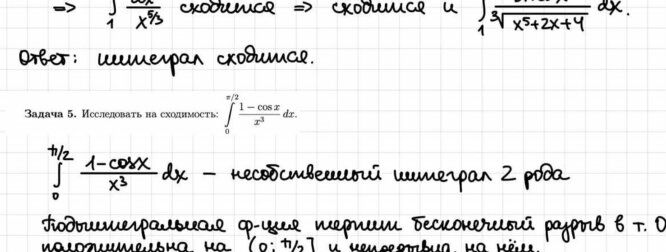 => ∫₁ dx/x^(5/3) сходится => сходится и ∫₁ dx/∛(x⁵+2x+4) dx.
Ответ: интеграл сходится.
Задача 5. Исследовать на сходимость: ∫₀^(π/2) (1 − cos x)/x³ dx.
∫₀^(π/2) (1-cosx)/x³ dx – несобственный интеграл 2 рода
Подынтегральная ф-ция терпит бесконечный разрыв в т. 0
положительна на (0; π/2] и непрерывна на нём.